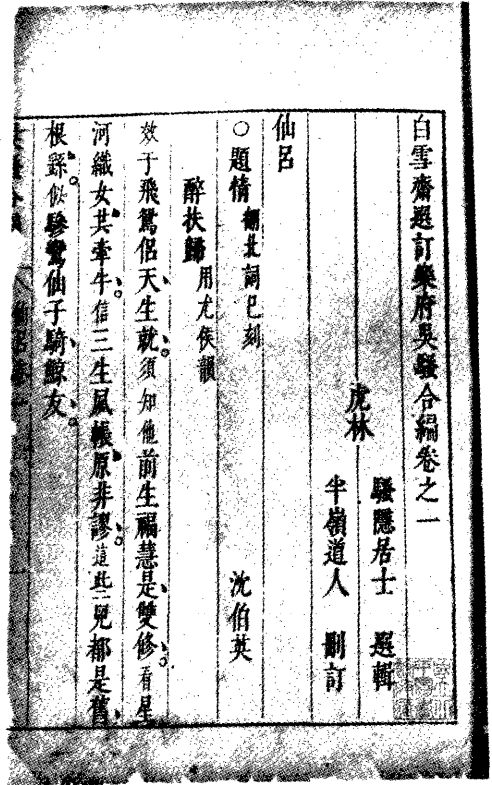 白雪齋選訂樂府吳騷合編卷之一
虎林
騷隱居士 選輯
半嶺道人 刪訂
仙呂
○題情 翻北詞已刻 沈伯英
醉扶歸 用尤侯韻
效于飛鴛侶天生就須知他前生福慧是雙修看星
河織女共牽牛信三生鳳帳原非謬這些兒都是舊
根繇似驂鸞仙子騎鯨友